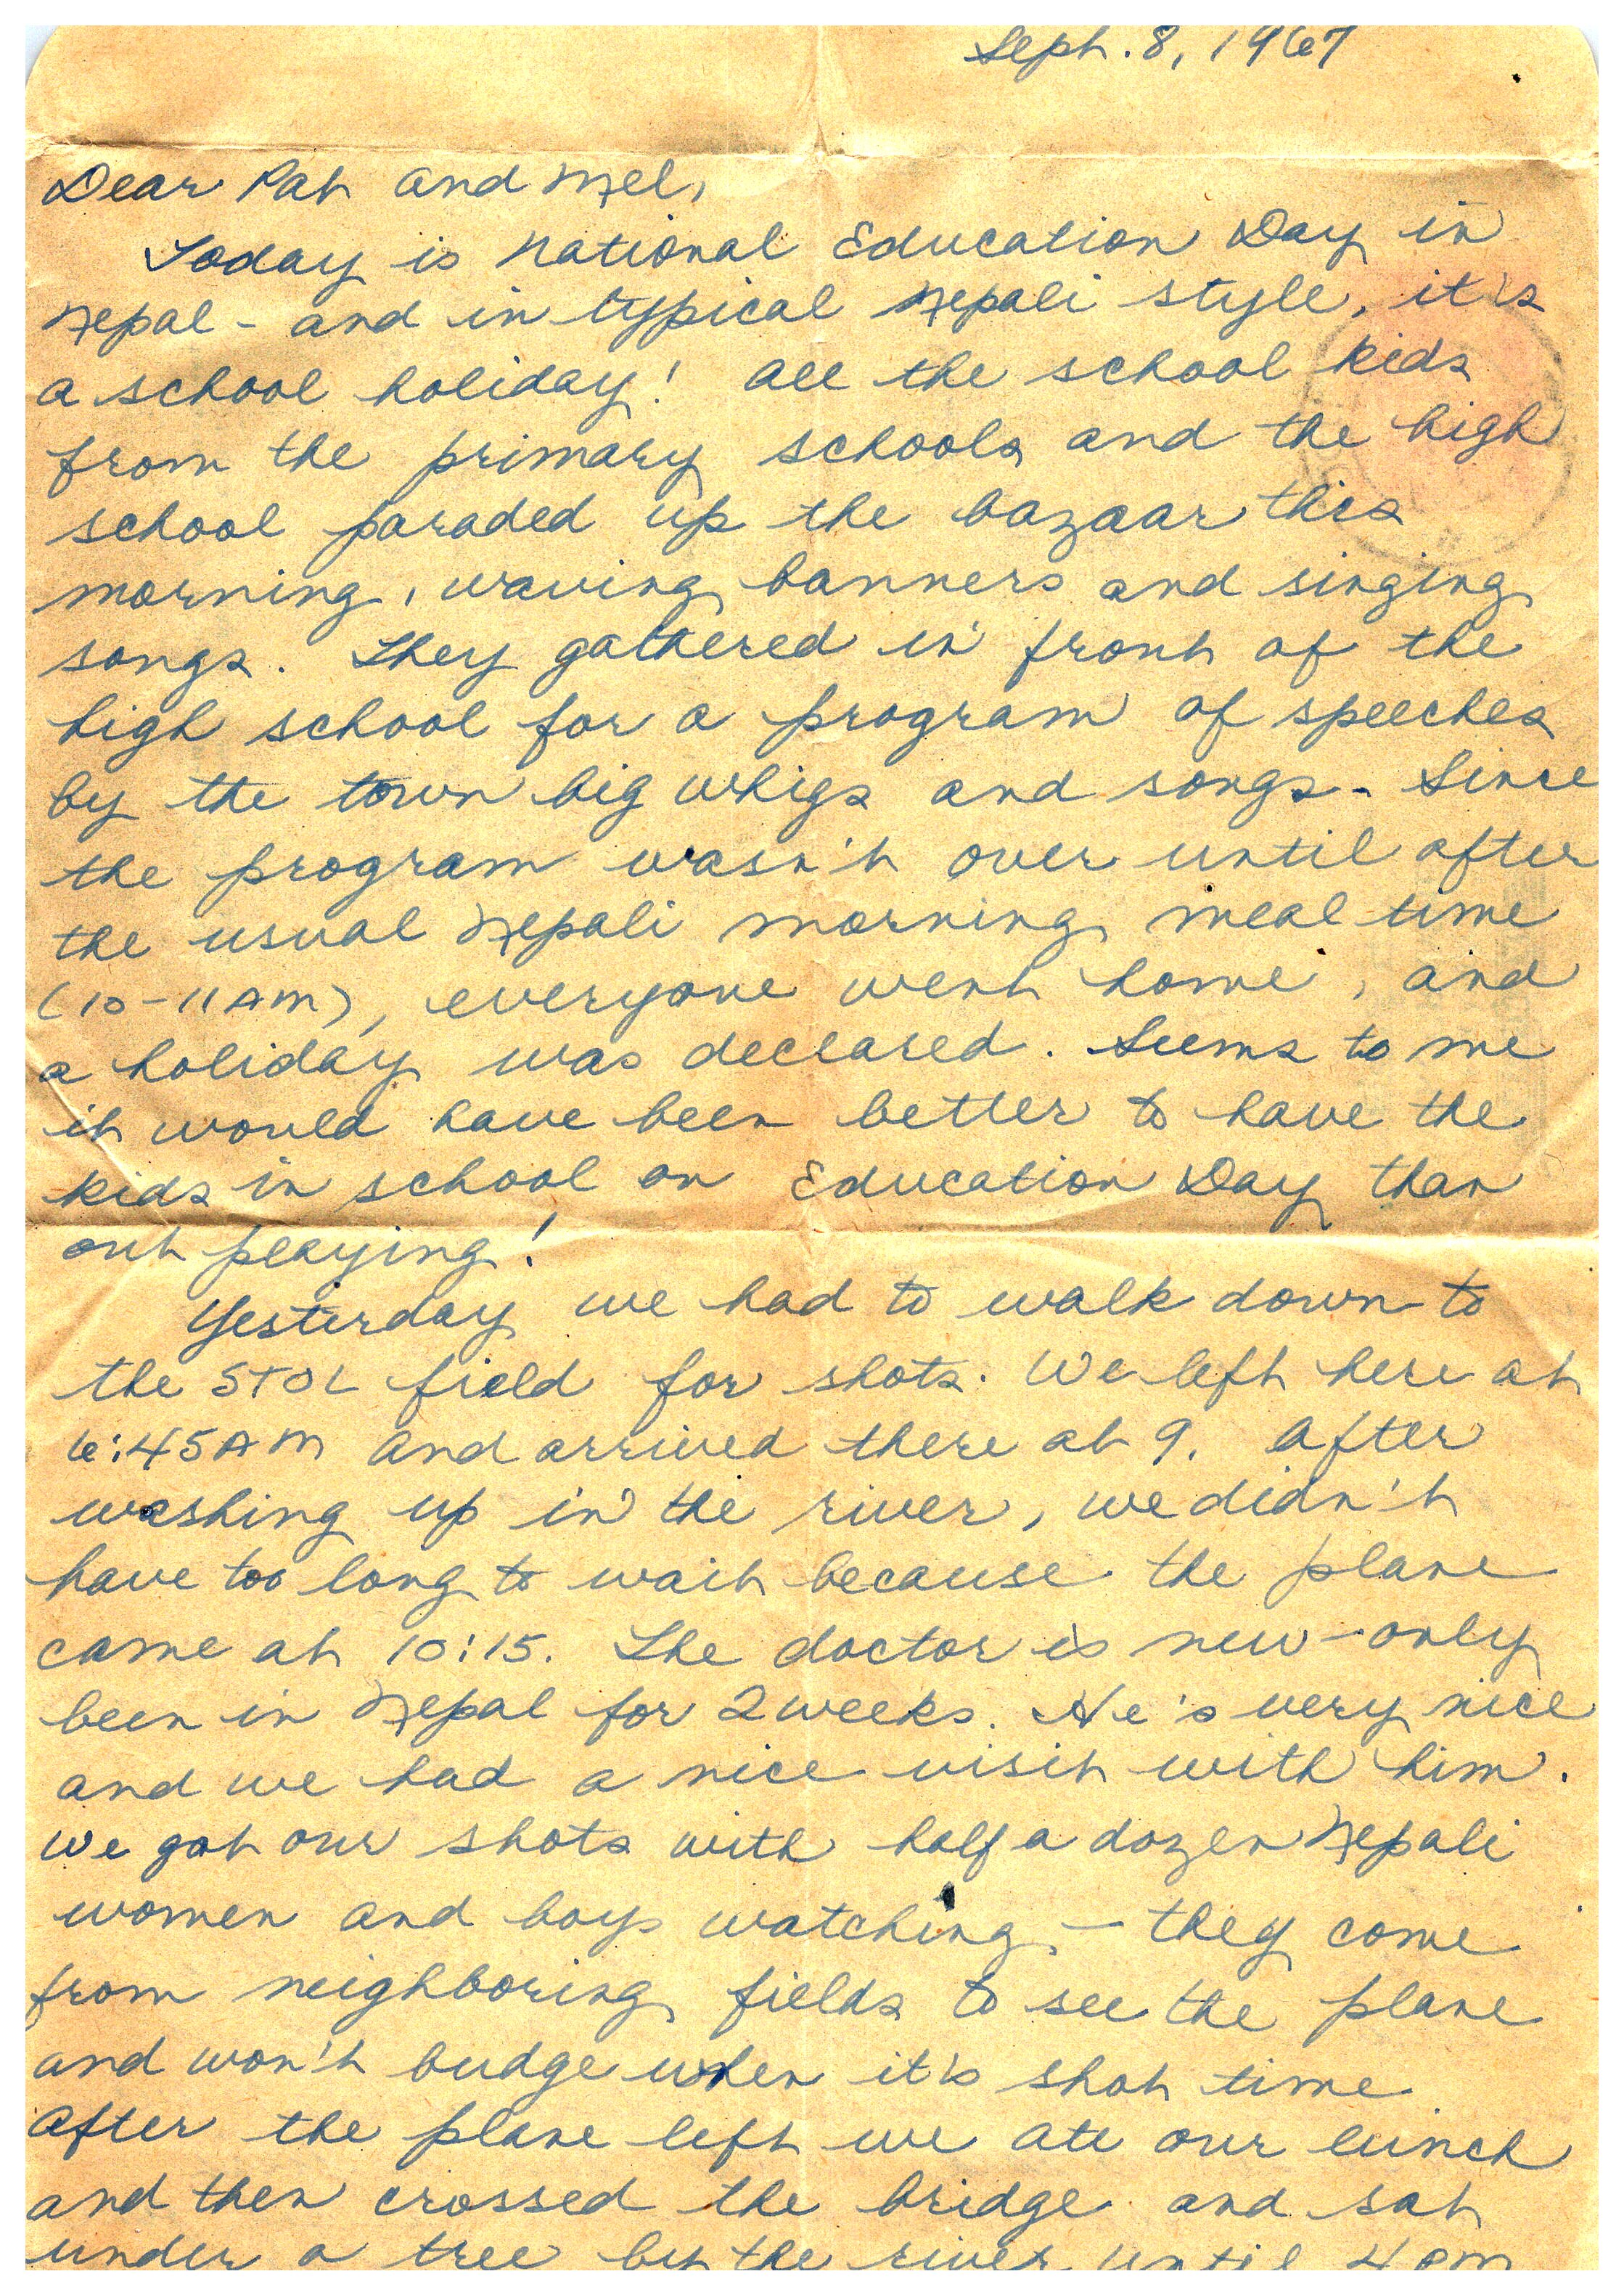 Sept. 8, 1967
Dear Pat and Mel,
Today is National Education Day in
Nepal - and in typical Nepali style, it's
a school holiday! All the school kids
from the primary schools and the high
school paraded up the bazaar this
morning, waving banners and singing
songs. They gathered in front of the
high school for a program of speeches
by the town big whigs and songs. Since
the program wasn't over until after
the usual Nepali morning meal time
(10-11 AM), everyone went home, and
a holiday was declared. Seems to me
it would have been better to have the
kids in school on Education Day than
out playing!
Yesterday we had to walk down to
the STOL field for shots. We left here at
6:45 AM and arrived there at 9. After
washing up in the river, we didn't
have too long to wait because the plane
came at 10:15. The doctor is new - only
been in Nepal for 2 weeks. He's very nice
and we had a nice visit with him.
We got our shots with half a dozen Nepali
women and boys watching - they come
from neighboring fields to see the plane
and won't budge when it's shot time.
After the plane left we ate our lunch
and then crossed the bridge and sat
under a tree by the river until 4 PM